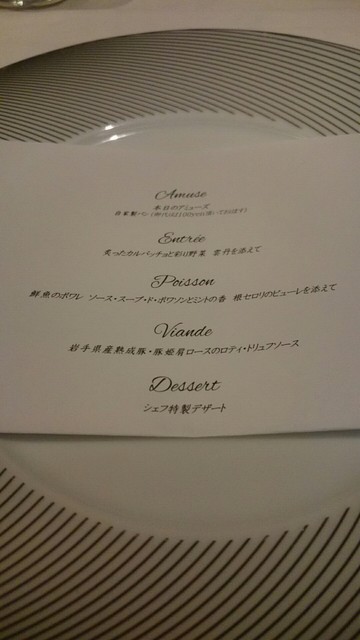 Amuse
本日のアミューズ
自家製パン
Entrée
炙ったカルパッチョと彩り野菜 雲丹を添えて
Poisson
鮮魚のポワレ ソース・スープ・ド・ポワソンとミントの香 根セロリのピューレを添えて
Viande
岩手県産熟成豚・豚姫肩ロースのロティ・トリュフソース
Dessert
シェフ特製デザート